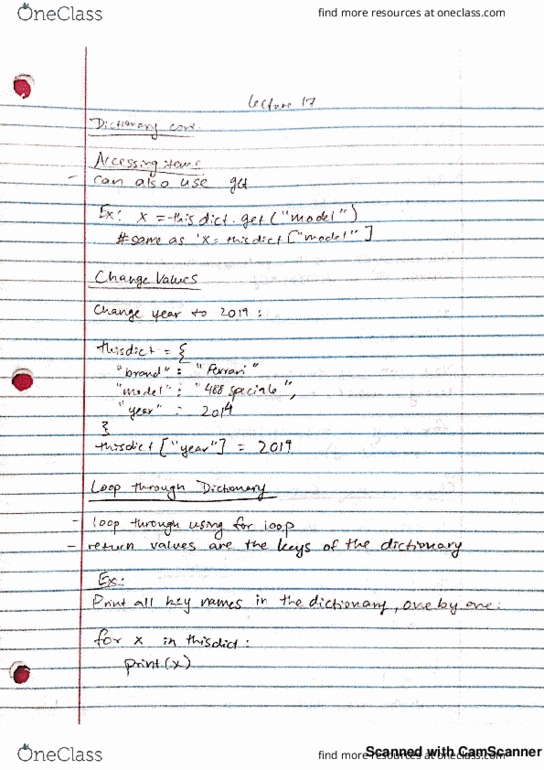 OneClass
find more resources at oneclass.com
Lecture 17
Dictionary cont.
Accessing items
- can also use get
Ex: x = thisdict.get("model")
#same as 'x = thisdict["model"]
Change Values
Change year to 2019:
thisdict = {
"brand": "Ferrari"
"model": "488 speciale",
"year" : 2014
}
thisdict["year"] = 2019
Loop through Dictionary
- loop through using for loop
- return values are the keys of the dictionary
Ex:
Print all key names in the dictionary, one by one:
for x in thisdict:
print(x)
OneClass
find more resources at oneclass.com
Scanned with CamScanner